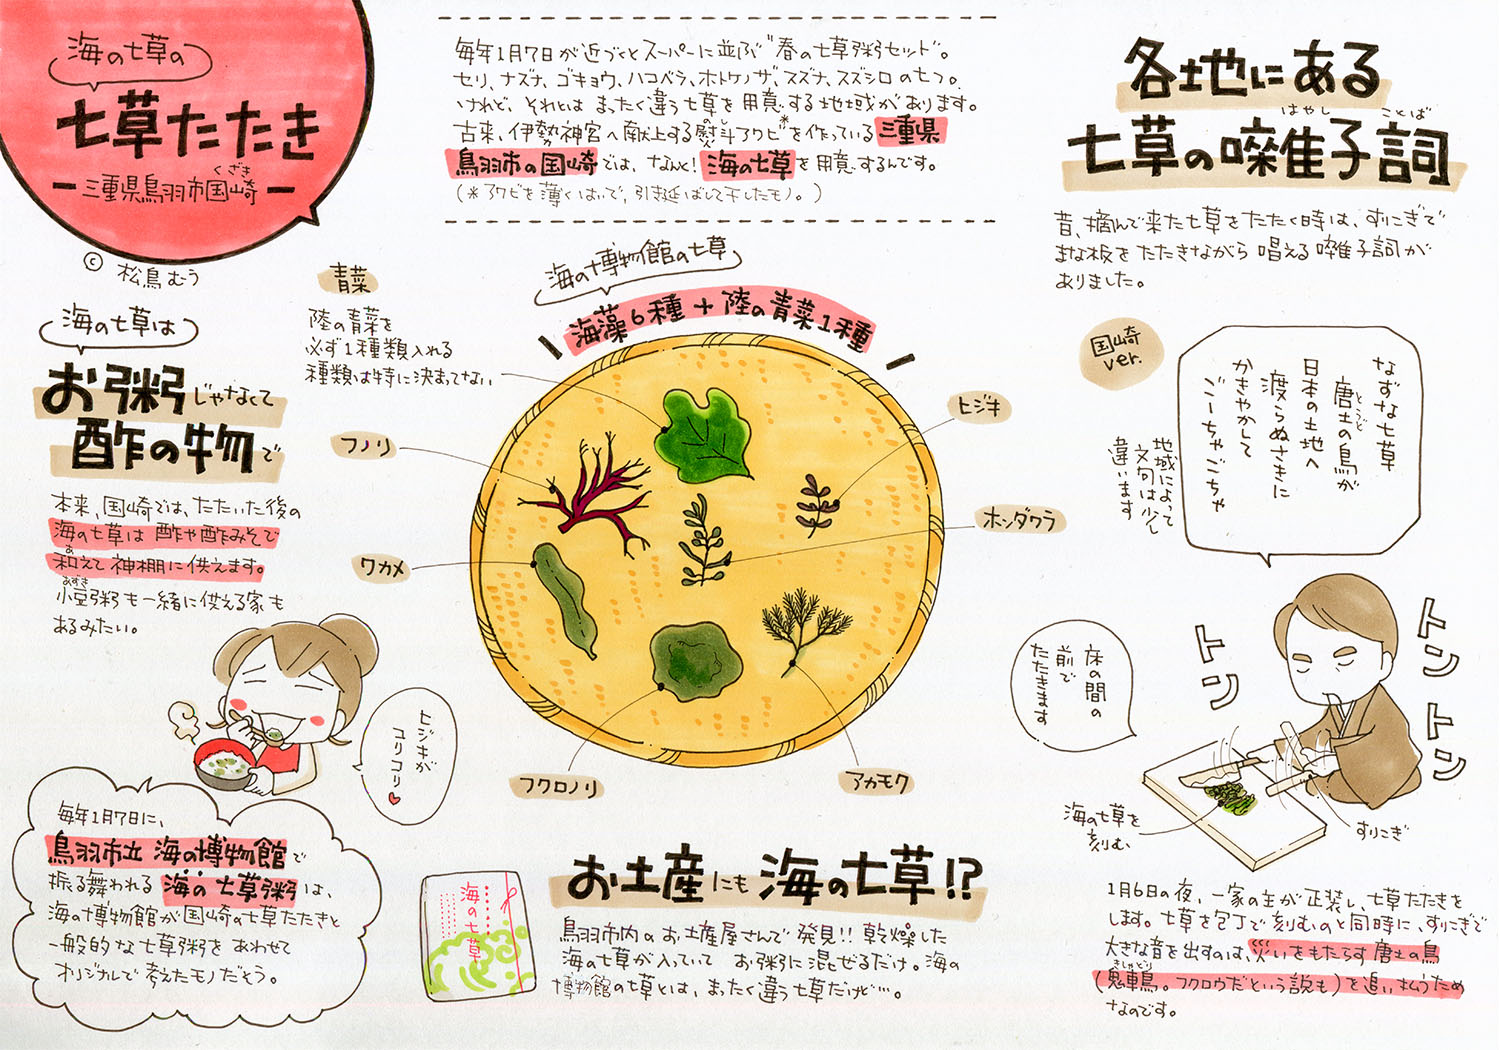 海の七草の
七草たたき
くざき
ー三重県鳥羽市国崎ー
© 松鳥むう
毎年1月7日が近づくとスーパーに並ぶ"春の七草粥セット"。
セリ、ナズナ、ゴキョウ、ハコベラ、ホトケノザ、スズナ、スズシロの七つ。
けれど、それとは まったく違う七草を用意する地域があります。
古来、伊勢神宮へ献上する熨斗アワビ*を作っている三重県
のし
鳥羽市の国崎では、なんと!海の七草を用意するんです。
(*アワビを薄くはいで、引き延ばして干したモノ。)
各地にある
はやし ことば
七草の囃子詞
昔、摘んで来た七草をたたく時は、すりこぎで
まな板をたたきながら唱える囃子詞が
ありました。
国崎
ver.
なずな七草
唐土の鳥が
とうど
日本の土地へ
渡らぬさきに
かきやかして
ごーちゃごちゃ
地域によって
文句は少し
違います
海の博物館の七草
海藻6種+陸の青菜1種
青菜
陸の青菜を
必ず1種類入れる
種類は特に決まってない
フノリ
ワカメ
フクロノリ
アカモク
ホンダワラ
ヒジキ
海の七草は
お粥じゃなくて
酢の物で
本来、国崎では、たたいた後の
海の七草は酢や酢みそで
あ
和えて神棚に供えます。
あずき
小豆粥も一緒に供える家も
あるみたい。
ヒジキが
コリコリ♥
毎年1月7日に、
鳥羽市立 海の博物館で
振る舞われる 海の七草粥は、
海の博物館が国崎の七草たたきと
一般的な七草粥をあわせて
オリジナルで考えたモノだそう。
海の七草
お土産にも 海の七草!?
鳥羽市内のお土産屋さんで発見!!乾燥した
海の七草が入っていて お粥に混ぜるだけ。海の
博物館の七草とは、まったく違う七草だけど…。
床の間の
前で
たたきます
トントン
トントン
トン
海の七草を
刻む
すりこぎ
1月6日の夜、一家の主が正装し、七草たたきを
します。七草を包丁で刻むのと同時に、すりこぎで
大きな音を出すのは、災いをもたらす唐土の鳥
きしゃどり
(鬼車鳥。フクロウだという説も)を追い払うため
なのです。